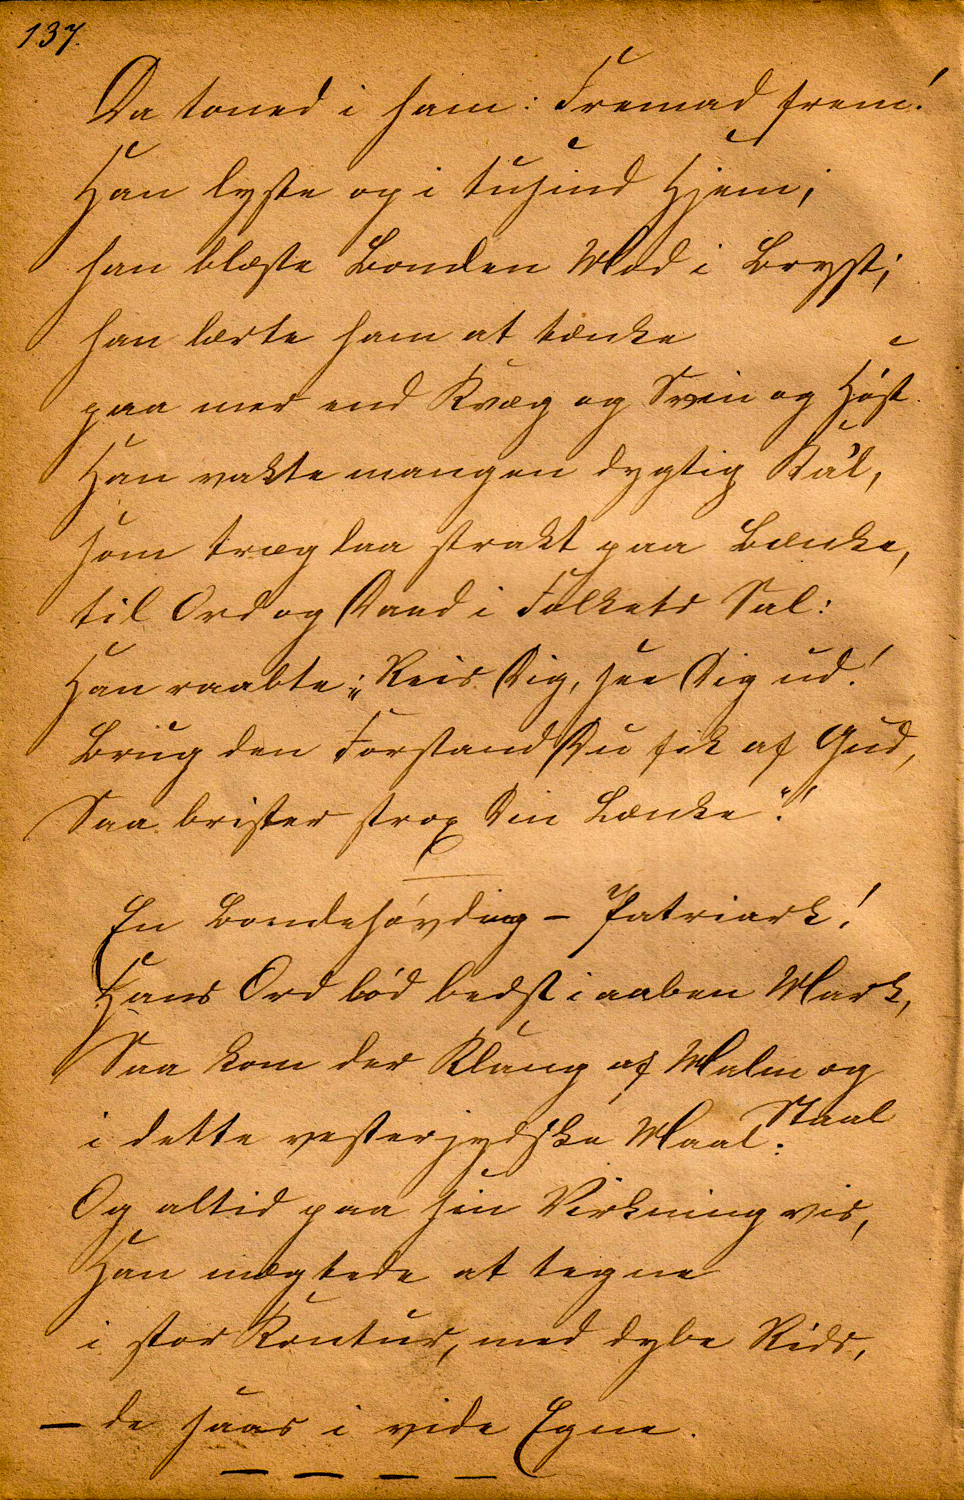 137.
Da toned i ham: Fremad frem!
Han lyste op i tusind Hjem;
han blæste Bonden Mod i Bryst;
han lærte ham at tænke
paa mer end Kvæg og Svin og Høst.
Han vakte mangen dygtig Kal,
som træg laa strakt paa Bænke,
til Ord og Daad i Folkets Sal:
Han raabte: „Reis Dig, see Dig ud!
Brug den Forstand Du fik af Gud,
Saa brister strax Din Lænke“!
En Bondehøvding – Patriark!
Hans Ord lød bedst i aaben Mark,
Saa kom der Klang af Malm og
Staal
i dette vesterjydske Maal:
Og altid paa sin Virkning vis,
Han mægtede at tegne
i stor Kontur, med dybe Rids,
– de saas i vide Egne.
– – – –